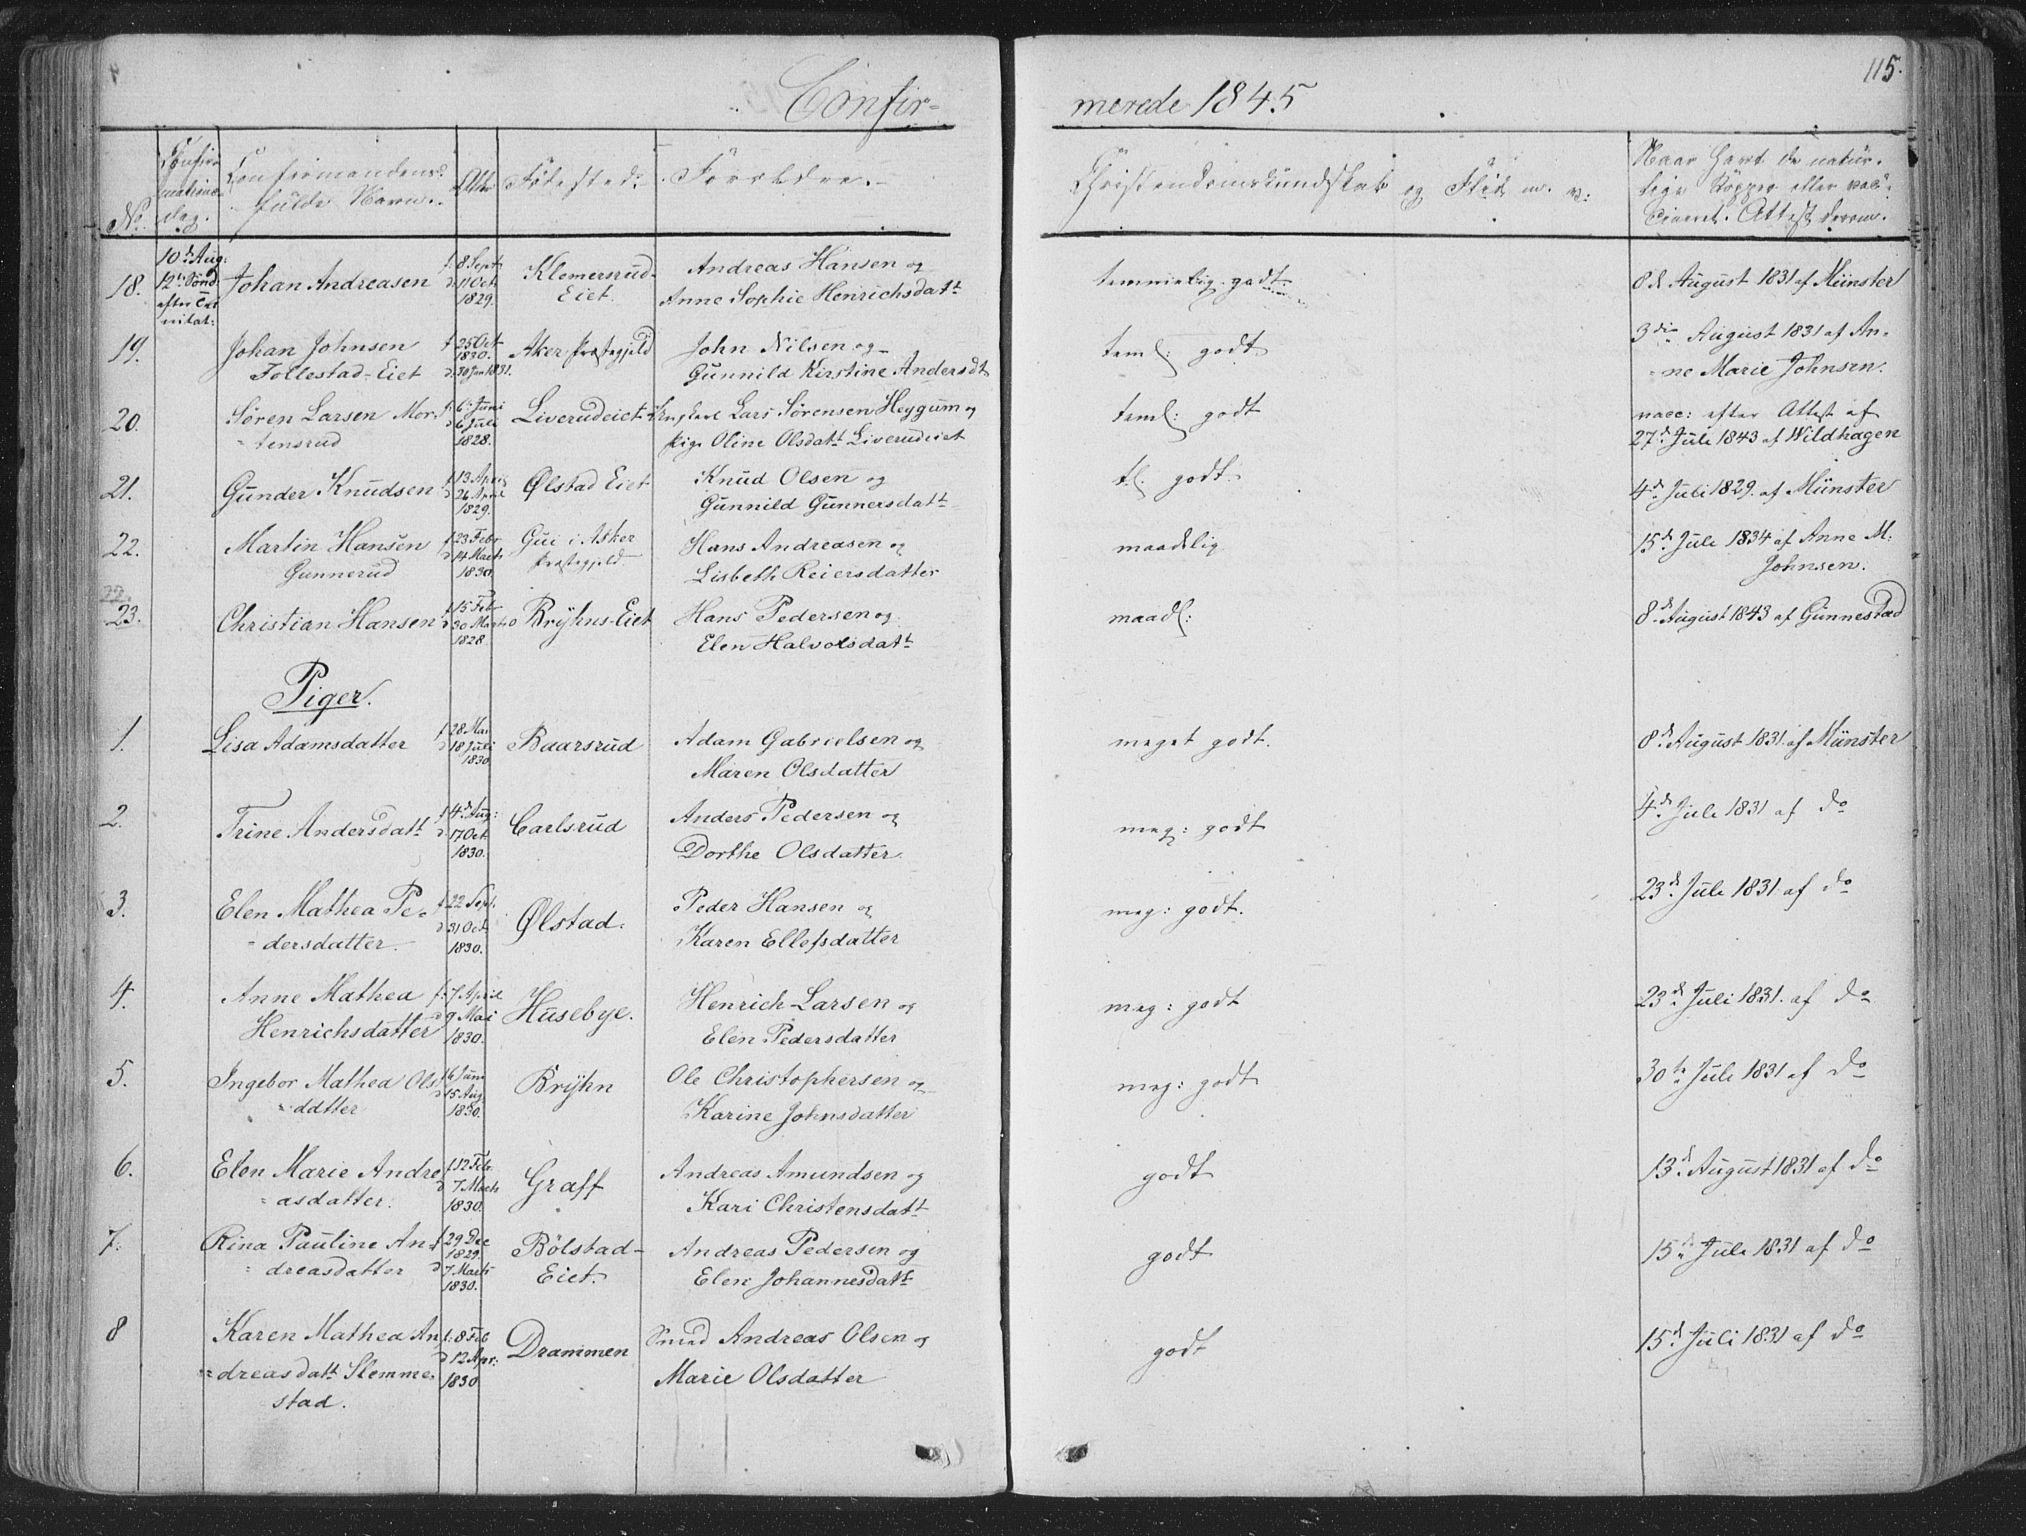 115.
Confir-
merede 1845
No.
Confir-
mations
dag.
Confirmandens
fulde Navn.
Alder
Födested:
Forældre.
Christendomskundskab og Flid m. v:
Naar havt de natür-
lige Kopper eller vac-
cineret. Attest derom.
18.
10de Aug:
12te Sønd
efter Tri
nitat:
Johan Andreasen
f: 8 Sept
d. 11 Oct
1829.
Klemersrud-
Eiet.
Andreas Hansen og
Anne Sophie Henrichsdatt
temmelig godt.
8de August 1831 af Münster
19.
Johan Johnsen
Follestad-Eiet
f 25 Oct
1830.
d. 30 Jan 1831.
Aker Præstegjeld
John Nilsen og
Gunnild Kirstine Andersdt
teml: godt
3die August 1831 af An-
ne Marie Johnsen.
20.
Søren Larsen Mor-
tensrud
f: 6: Juni
d 6 Juli
1828.
Liverudeiet
Ungkarl Lars Sørensen Heggum og
Pige Oline Olsdatt Liverudeiet
teml: godt
vacc: efter Attest af
27de Juli 1843 af Wildhagen
21.
Gunder Knudsen
f 13 April
d 26 April
1829.
Ølstad Eiet
Knud Olsen og
Gunnild Gunnersdatt
tl. godt.
4de Juli 1829. af Münster
22.
Martin Hansen
Gunnerud
f 23 Febr
d 14 Marts
1830.
Gui i Asker
Præstegjeld
Hans Andreasen og
Lisbeth Reiersdatter
maadelig
15de Juli 1834 af Anne M:
Johnsen.
22.
23.
Christian Hansen
f 15 Feb
d 30 Marts
1828
Brÿhns-Eiet
Hans Pedersen og
Elen Halvolsdatt
maadl:
8de August 1843 af Gunnestad
Piger.
1.
Lisa Adamsdatter
f 28 Mai
d 18 Juli
1830
Baarsrud
Adam Gabrielsen og
Maren Olsdatter
meget godt.
8de August 1831 af Münster
2.
Trine Andersdatt
f 4de Aug:
d. 17 Oct
1830.
Carlsrud
Anders Pedersen og
Dorthe Olsdatter
meg: godt
4de Juli 1831 af do
3.
Elen Mathea Pe-
dersdatter
f 22 Sept.
d 31 Oct.
1830.
Ølstad.
Peder Hansen og
Karen Ellefsdatter
meg: godt.
23de Juli 1831 af do
4.
Anne Mathea
Henrichsdatter
f: 7 April
d 9 Mai
1830.
Husebye.
Henrich Larsen og
Elen Pedersdatter
meg: godt
23de Juli 1831. af do
5.
Ingebor Mathea Ols
ddtter
f 6 Juni
d 15 Aug
1830.
Brÿhn
Ole Christophersen og
Karine Johnsdatter
meg: godt
30te Juli 1831 af do
6.
Elen Marie Andre
asdatter.
f 12 Feb.
d 7 Marts
1830.
Graff
Andreas Amundsen og
Kari Christensdatt
godt
13de August 1831 af do
7.
Rina Pauline An-
dreasdatter
f 29 Dec
1829.
d 7 Marts
1830.
Bölstad-
Eiet.
Andreas Pedersen og
Elen Johannesdatt
godt
15de Juli 1831 af do
8
Karen Mathea An
dreasdatt Slemme-
stad.
f: 8 Feb
d 12 Apr:
1830
Drammen
Smed Andreas Olsen og
Marie Olsdatter
godt
15de Juli 1831 af do